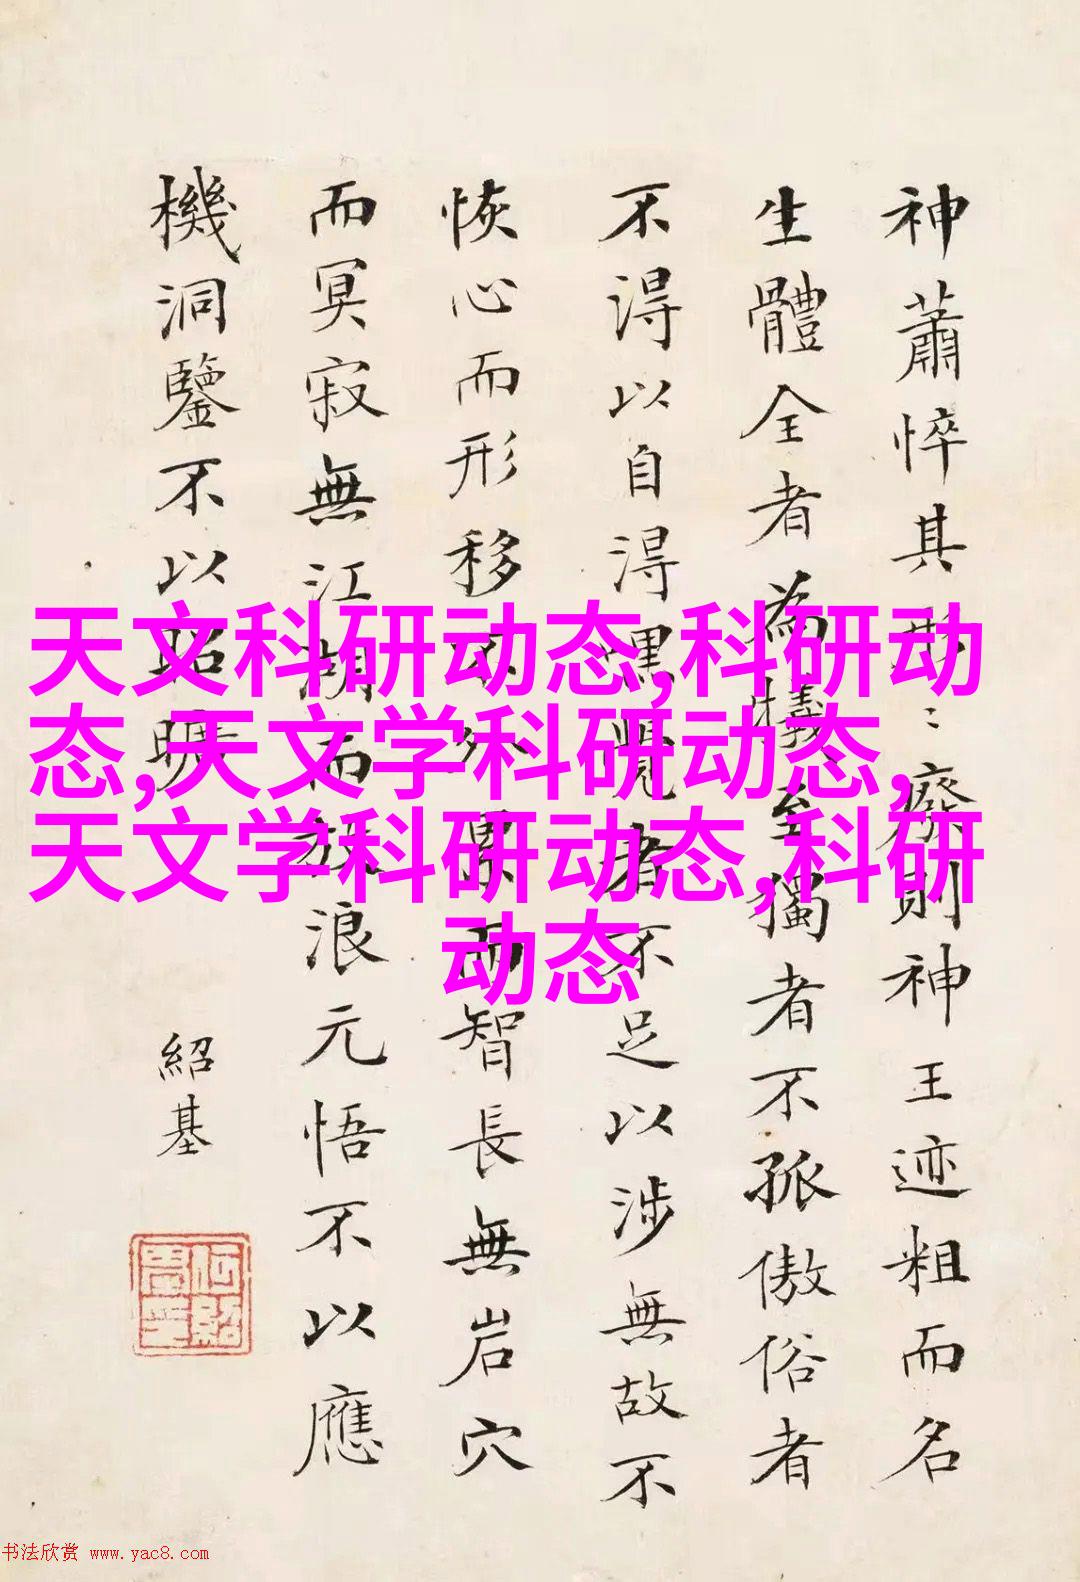 神蕭悴其形〻廢則神王迹粗而名
生體全者為犧至獨者不孤傲俗者
不得以自得嘿覺者不足以涉無故不
恢心而形移不外累而智長無岩穴
而冥寂無江湖而放浪元悟不以應
機洞鑒不以昭曠
紹基
天文科研动态,科研动
态,天文学科研动态,
天文学科研动态,科研
动态
书法欣赏 www.yac8.com